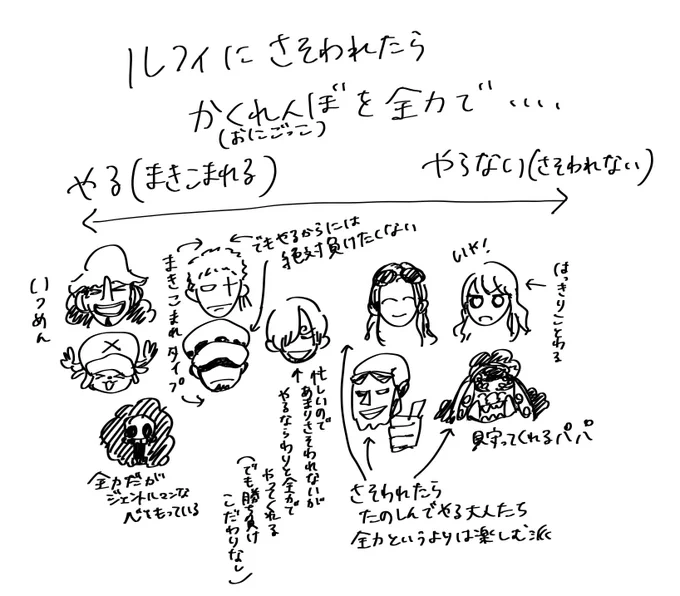 ルフィにさそわれたら
かくれんぼを全力で‥‥
(おにごっこ)
やる(まきこまれる)
やらない(さそわれない)
いつめん
まきこまれタイプ
でもやるからには
絶対負けたくない
いや!
はっきりことわる
忙しいので
あまりさそわれないが
やるならわりと全力で
やってくれる
(でも勝ち負け
こだわりなし)
全力だが
ジェントルマンな
心もっている
さそわれたら
たのしんでやる大人たち
全力というよりは楽しむ派
見守ってくれるパパ